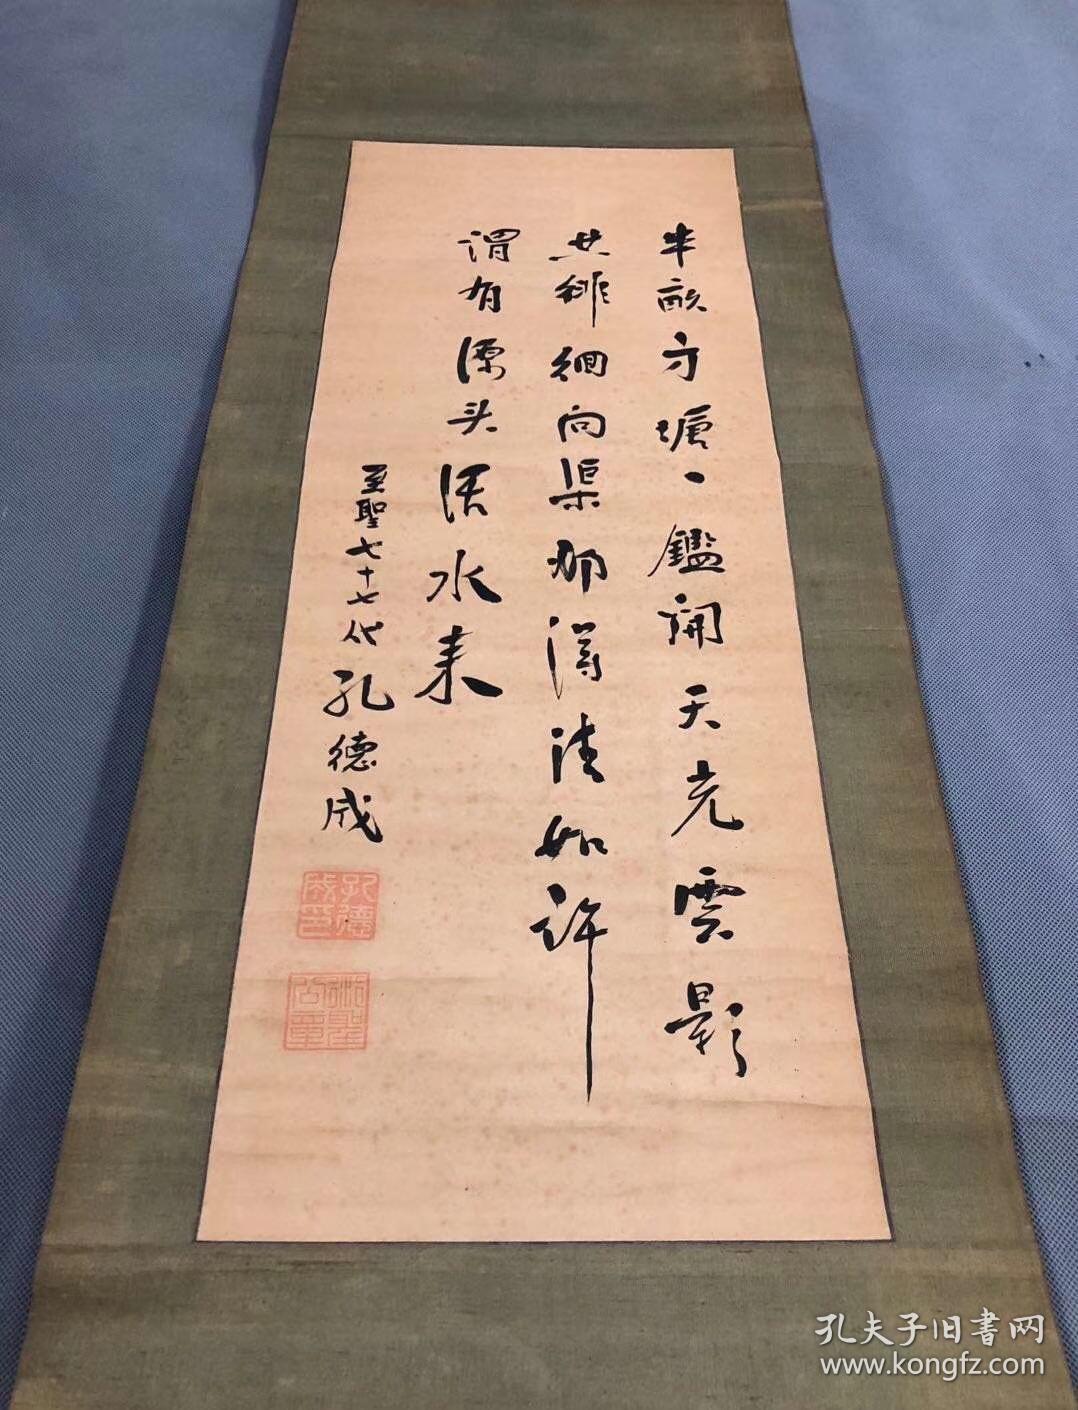 半畝方塘一鑑開天光雲影
共徘徊向渠那得清如許
謂有源头活水来
至聖七十七代孔德成
孔德成印
衍聖公章
孔夫子旧書网
www.kongfz.com